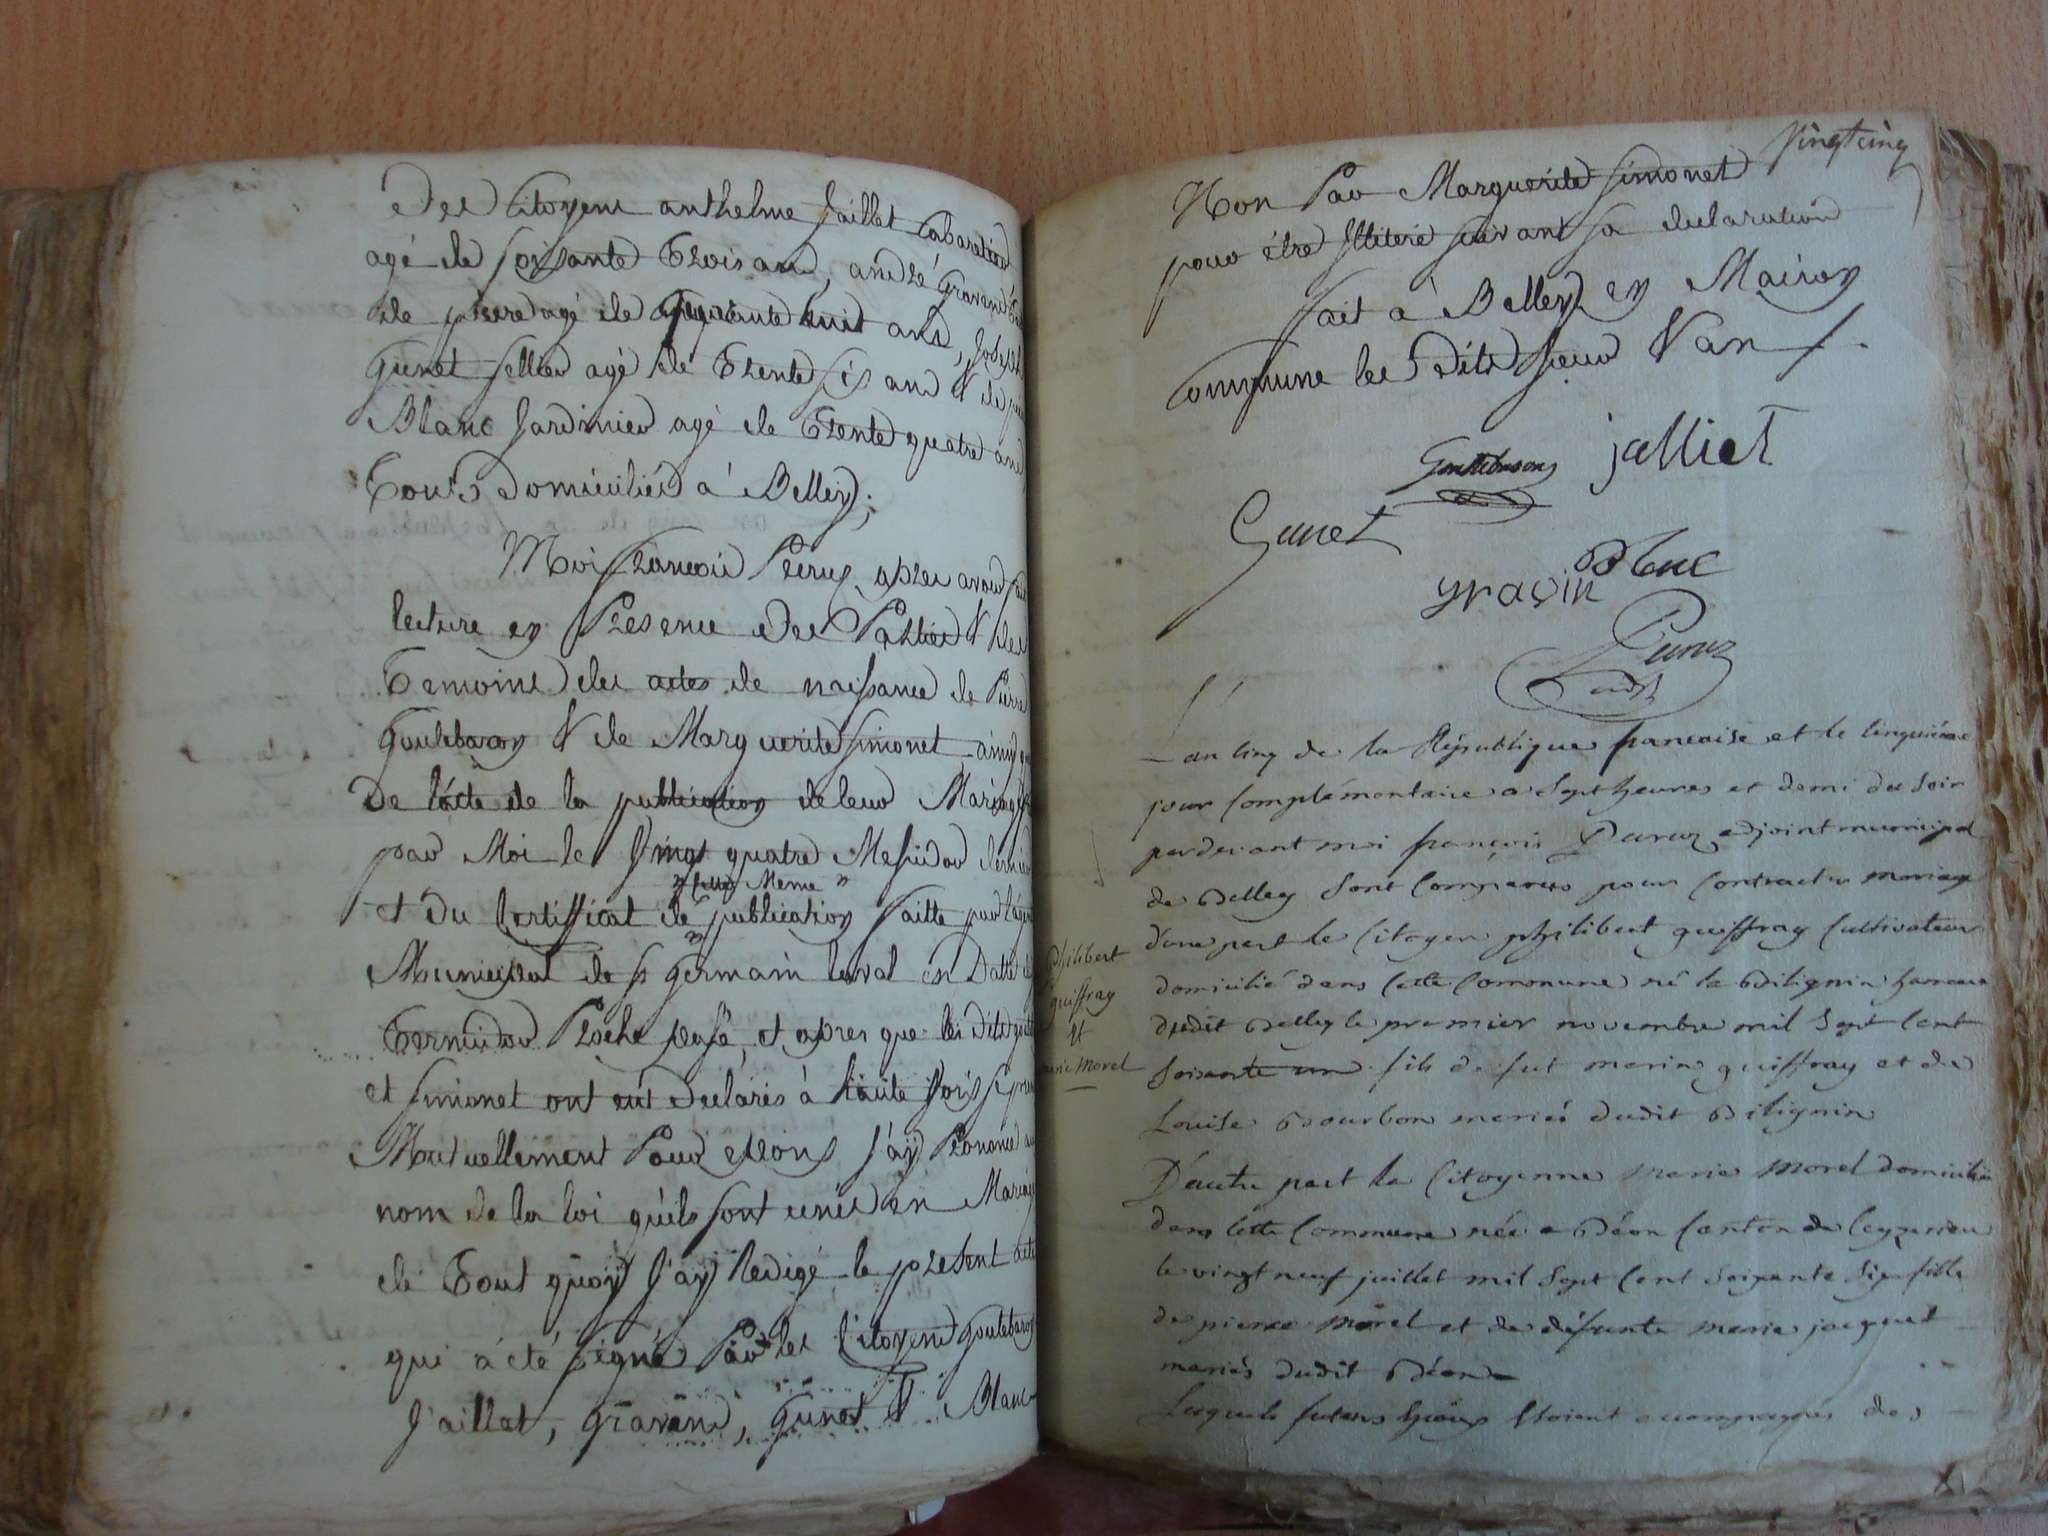 Des Citoyens anthelme Jaillet Cabaretier
agé de soisante trois ans, andré
de pierre agé de quarante huit ans, Joseph
Gunet sellier agé de trente six ans & de
Blanc Jardinier agé de trente quatre ans
tous domiciliés a Belley;
Moi françois Peruz apres avoir fait
lecture en Presence des Parties & des
temoins des actes de naissance de Pierre
Goutebaron & de Marguerite Simonet ainsy que
De l'acte de la publication de leur Mariage
par Moi le vingt quatre Messidor dernier
cette Meme
et du Certifficat de publication faitte par l'agent
Municipal de st germain laval en Datte
termidor Proche passé, et apres que les dits
et Simonet ont eut declarés à haute voix se prendre
Mutuellement Pour epoux J'aÿ Prononcé au
nom de la loi qu'ils sont unis en Mariage
de tout quoÿ J'aÿ Redigé le present acte
qui a été signé Par les Citoyens Goutebaron
Jaillet, Gravend, Gunet & Blanc
vingt cinq
Non Par Marguerite Simonet
pour être Illiteré suivant sa declaration
fait a Belley en Maison
Commune les dits jour & an
Goutebaron jalliet
Gunet
Blanc
gravin
Peruz
adjt
L'an cinq de la République francaise et le cinquième
jour Complémentaire a Sept heures et demi du Soir
pardevant moi françois Peruz adjoint municipal
de Belley Sont Comparus pour Contracter mariage
d'une part le Citoyen philibert guiffray Cultivateur
domicilié dans Cette Commune né la Bilignin hameau
dudit Belley le premier novembre mil Sept Cent
Soixante un fils de fut marin guiffray et de
Louise Bourbon mariés dudit Bilignin
Philibert
guiffray
et
marie Morel
D'autre part la Citoyenne marie morel domiciliée
dans Cette Commune née a Béon Canton de Ceyzerieu
le vingt neuf juillet mil Sept Cent Soixante Six fille
de pierre Morel et de défunte marie jacquet
mariés dudit Béon
Lesquels futurs Epoux Etoient accompagnés des